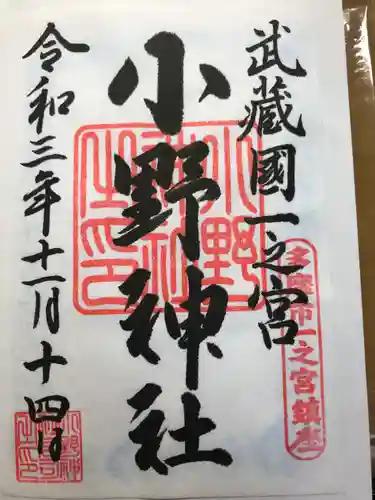 武蔵國一之宮
小野神社
令和三年十一月十四日
多摩市一之宮鎮座
小野神社之印